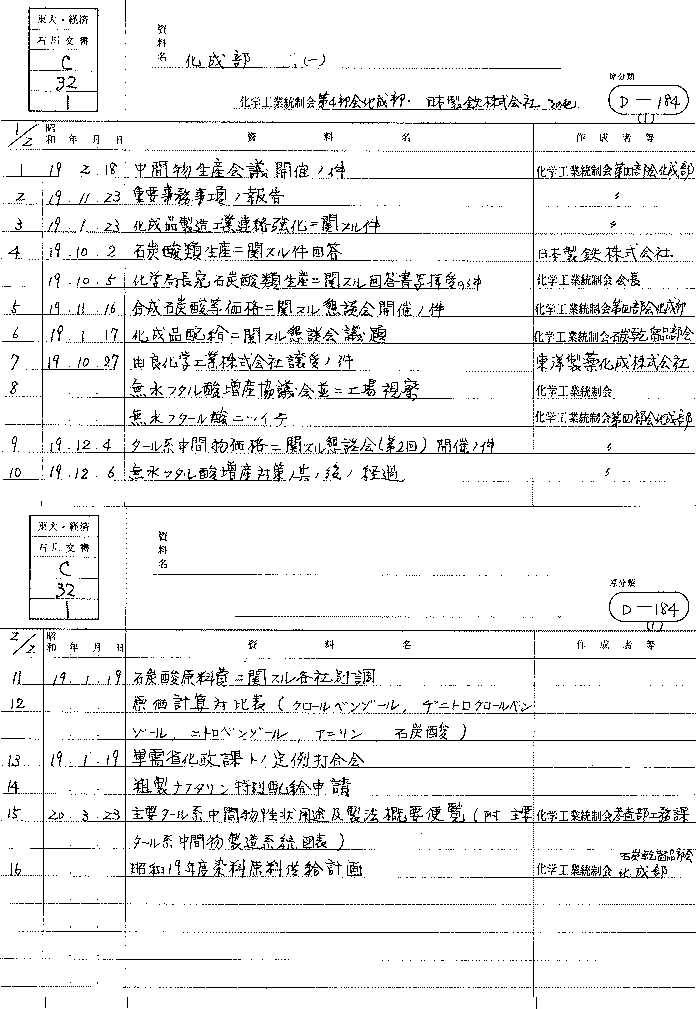 東大・経済
石川文書
C
32
1
資料名 化成部 (一)
化学工業統制会第4部会化成部・日本製鉄株式会社 その他
原分類
D-184
(1)
1/2 昭和 年 月 日 資 料 名 作 成 者 等
1 19 2. 18 中間物生産会議開催ノ件 化学工業統制会第四部会化成部
2 19. 11. 23 重要事務事項ノ報告 〃
3 19. 1. 23 化成品製造工業連絡強化ニ関スル件 〃
4 19. 10. 2 石炭酸類生産ニ関スル件回答 日本製鉄株式会社
19. 10. 5 化学局長宛石炭酸類生産ニ関スル回答書写拝受の件 化学工業統制会会長
5 19. 11. 16 合成石炭酸等価格ニ関スル懇談会開催ノ件 化学工業統制会第四部会化成部
6 19 1. 17 化成品配給ニ関スル懇談会議題 化学工業統制会石炭乾留品部会
7 19. 10. 27 由良化学工業株式会社譲受ノ件 東洋製薬化成株式会社
8 無水フタル酸増産協議会並ニ工場視察 化学工業統制会
無水フタール酸ニツイテ 化学工業統制会第四部会化成部
9 19. 12. 4 タール系中間物価格ニ関スル懇談会(第2回)開催ノ件 〃
10 19. 12. 6 無水フタル酸増産対策ノ其ノ後ノ経過 〃
東大・経済
石川文書
C
32
1
資料名
原分類
D-184
(1)
2/2 昭和 年 月 日 資 料 名 作 成 者 等
11 19. 1. 19 石炭酸原料費ニ関スル各社別調
12 原価計算対比表(クロールベンゾール, ヂニトロクロールベン
ゾール, ニトロベンゾール, アニリン, 石炭酸)
13 19. 1. 19 軍需省化政課トノ定例打合会
14 粗製ナフタリン特別配給申請
15 20. 3. 23 主要タール系中間物性状用途及製法概要便覧(附 主要 化学工業統制会考査部工務課
タール系中間物製造系統図表)
16 昭和19年度染料原料供給計画 化学工業統制会 石炭乾留品部会化成部